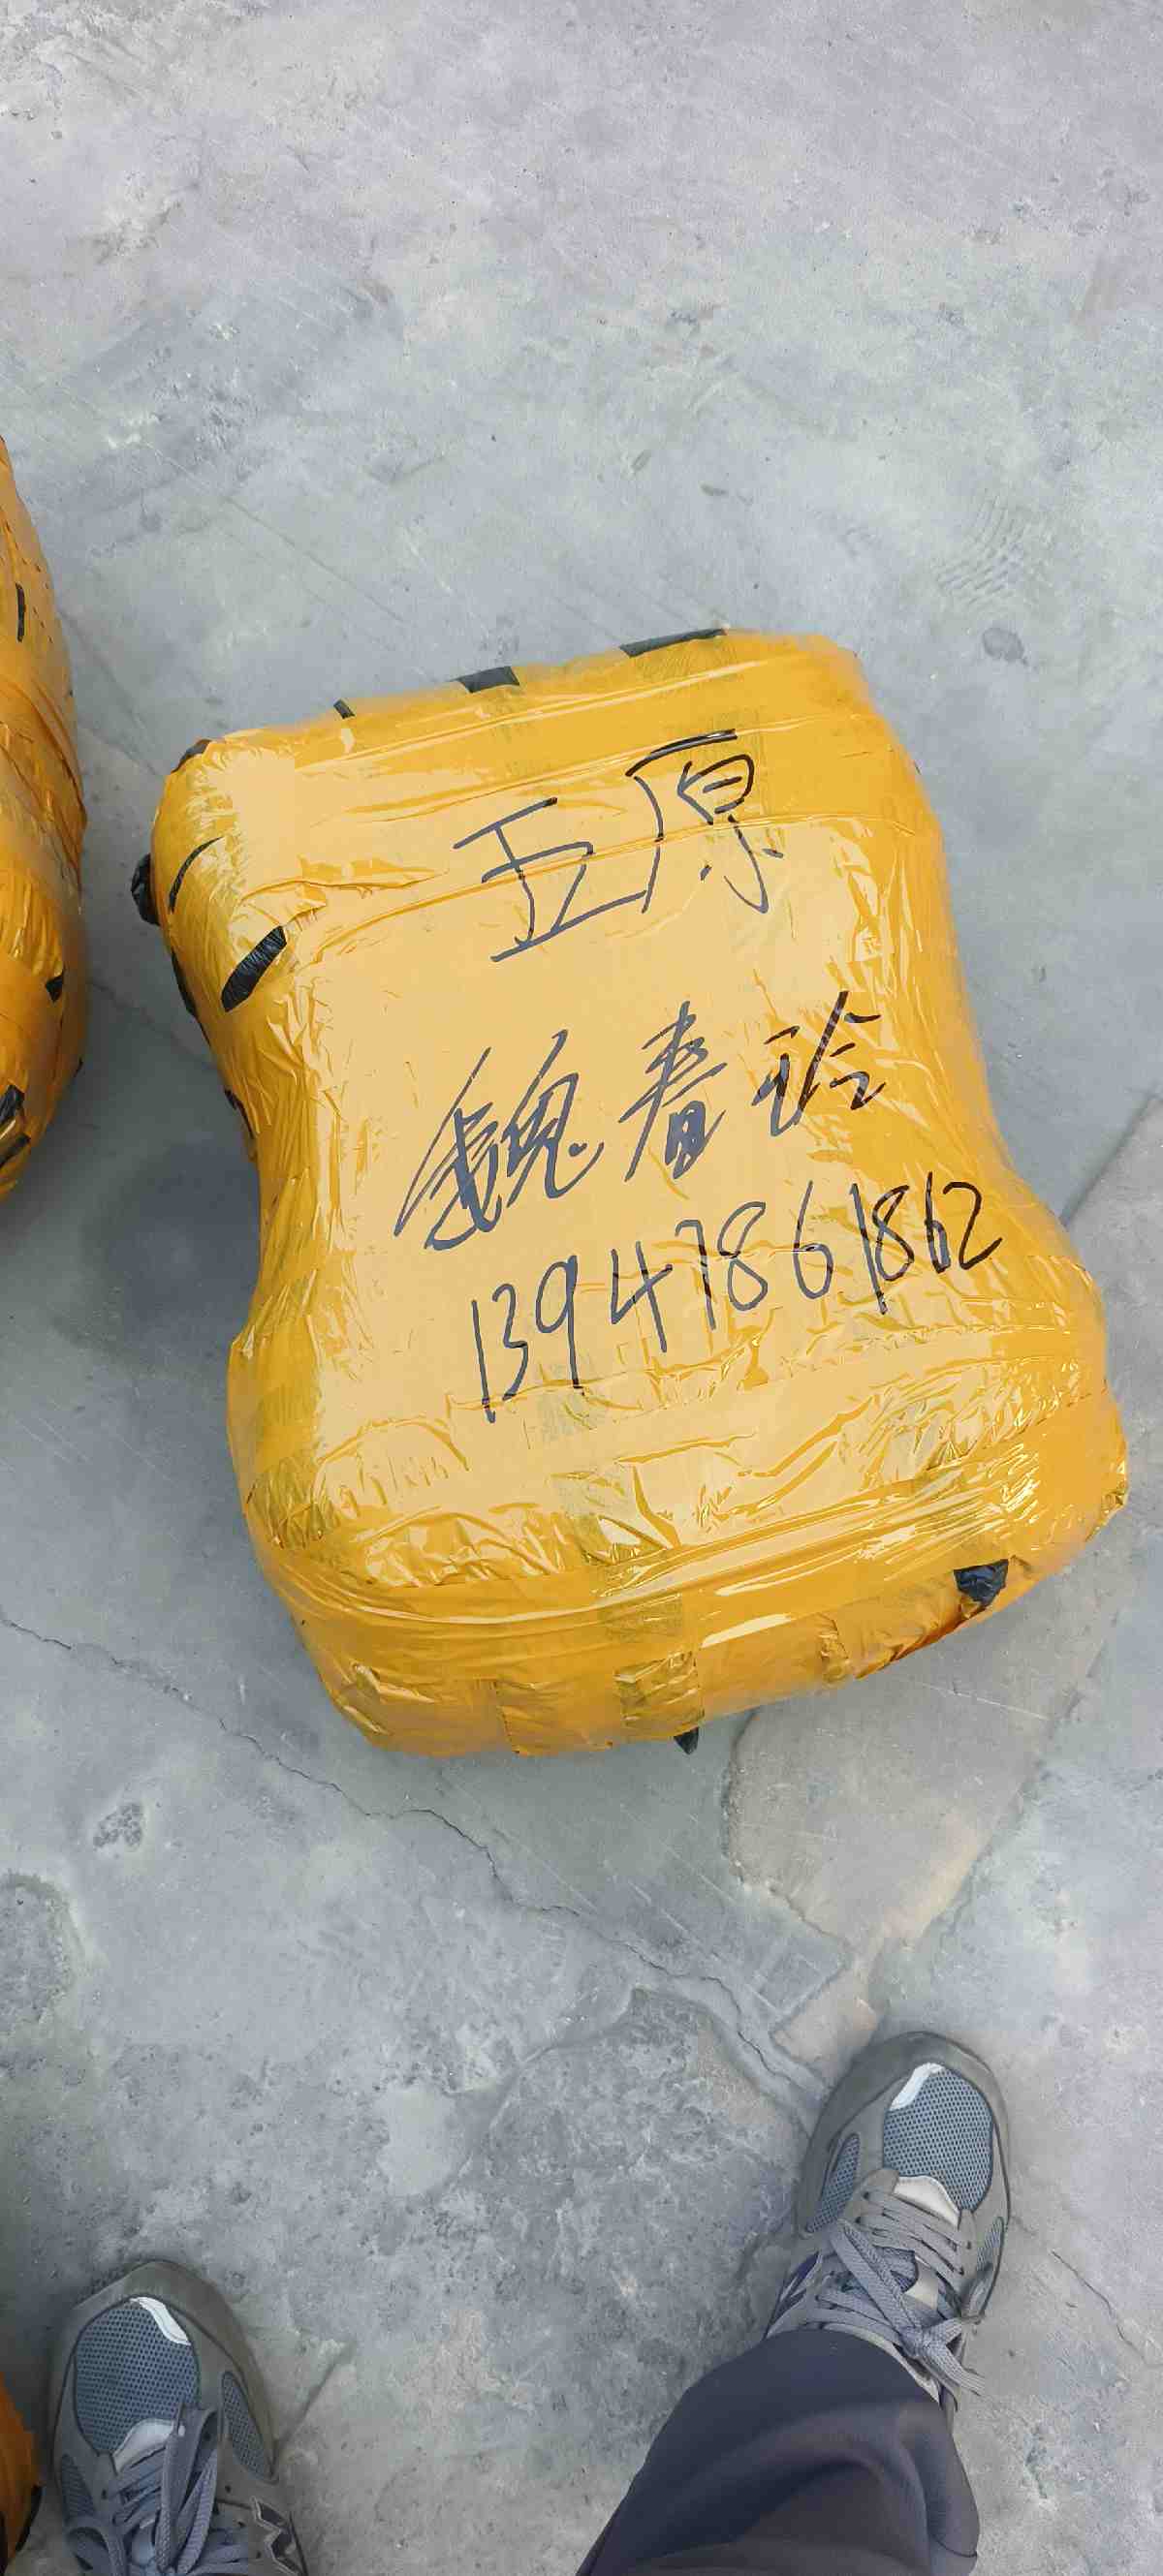 五原
魏春玲
13947861862